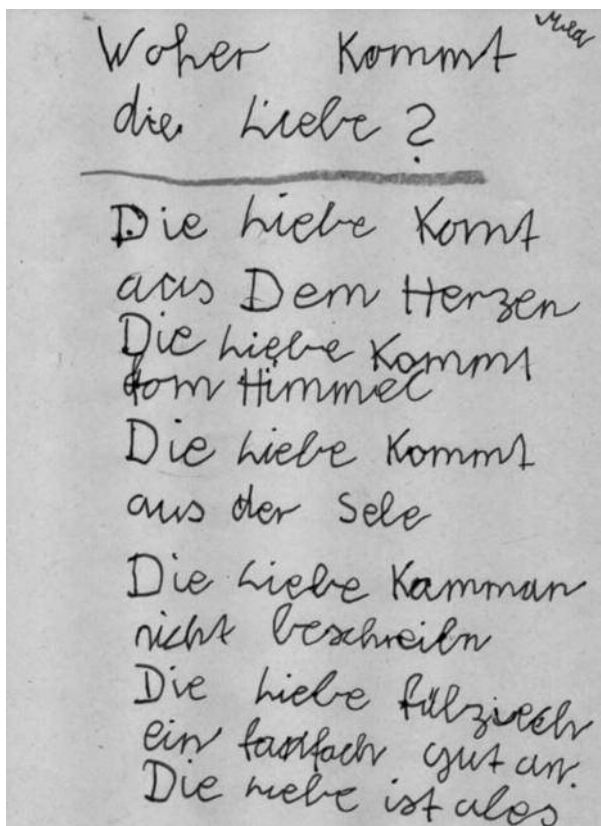 Woher Kommt
die Liebe?
Die Liebe Komt
aus Dem Herzen
Die Liebe Kommt
fom Himmel
Die Liebe Kommt
aus der Sele
Die Liebe Kamman
nicht beschreibn
Die Liebe fülziech
ein fach gut an.
Die Liebe ist ales